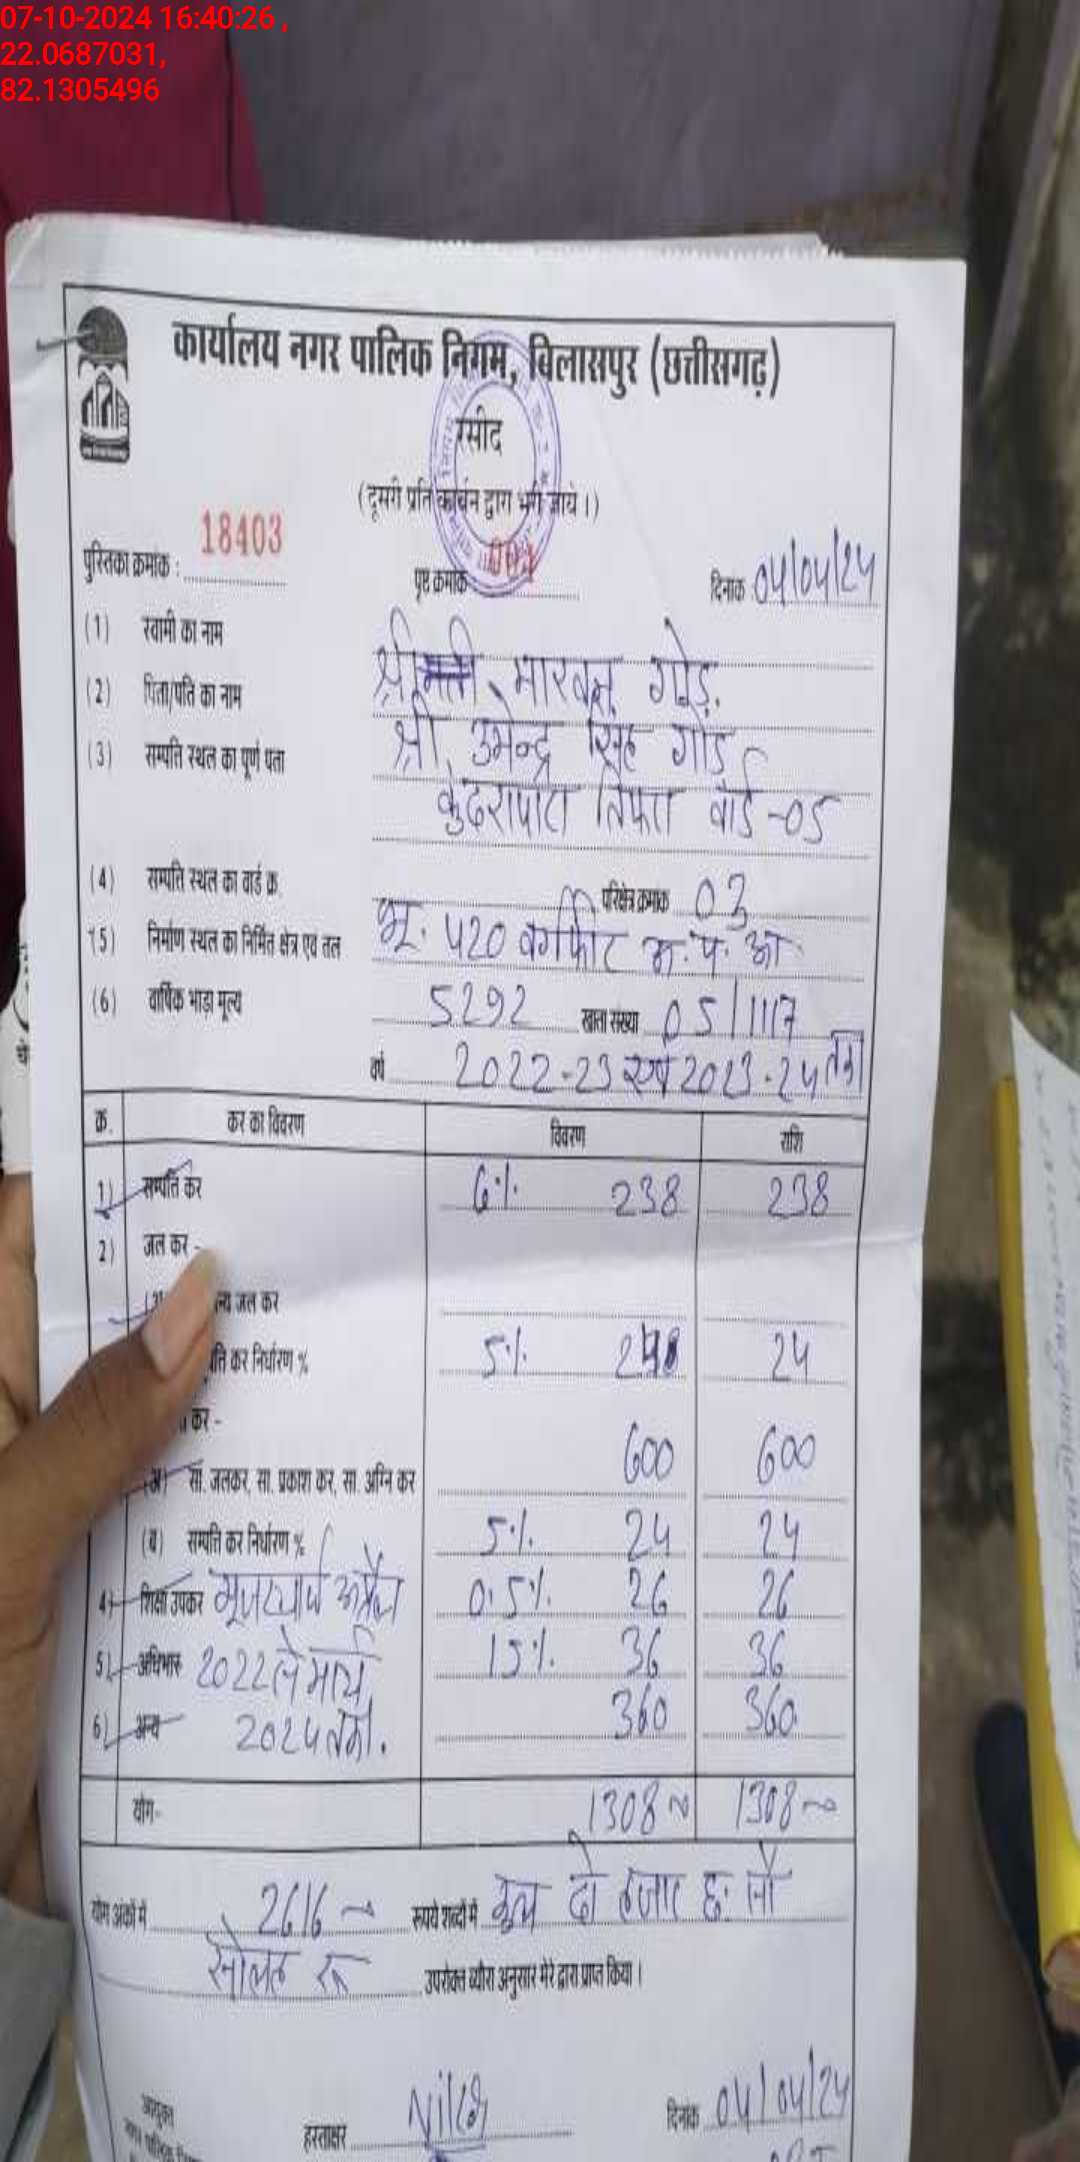 07-10-2024 16:40:26 ,
22.0687031,
82.1305496
कार्यालय नगर पालिक निगम, बिलासपुर (छत्तीसगढ़)
रसीद
(दूसरी प्रति कार्बन द्वारा भरी जाये।)
पुस्तिका क्रमांक : 18403 पृष्ठ क्रमांक दिनांक 04/04/24
(1) स्वामी का नाम
श्रीमती गोड़.
(2) पिता/पति का नाम
श्री उमेन्द्र सिंह गोंड़
(3) सम्पति स्थल का पूर्ण पता
तिफरा वार्ड -05
(4) सम्पति स्थल का वार्ड क्र. परिक्षेत्र क्रमांक 03
(5) निर्माण स्थल का निर्मित क्षेत्र एवं तल भू. 420 वर्गफीट
(6) वार्षिक भाड़ा मूल्य 5292 खाता संख्या 05/1117
वर्ष 2022-23 एवं 2023-24 तक
क्र. कर का विवरण विवरण राशि
1) सम्पति कर 6% 238 238
2) जल कर -
न्य जल कर
पति कर निर्धारण % 5% 24 24
कर -
(अ) सा. जलकर, सा. प्रकाश कर, सा. अग्नि कर 600 600
(ब) सम्पत्ति कर निर्धारण % 5% 24 24
4) शिक्षा उपकर अप्रैल 0.5% 26 26
5) अधिभार 2022 से मार्च 15% 36 36
6) अन्य 2024 तक. 360 360
योग- 1308 1308
योग अंकों में 2616 रूपये शब्दों में कुल दो हजार छः सौ
सोलह रू उपरोक्त ब्यौरा अनुसार मेरे द्वारा प्राप्त किया।
आयुक्त
हस्ताक्षर दिनांक 04/04/24